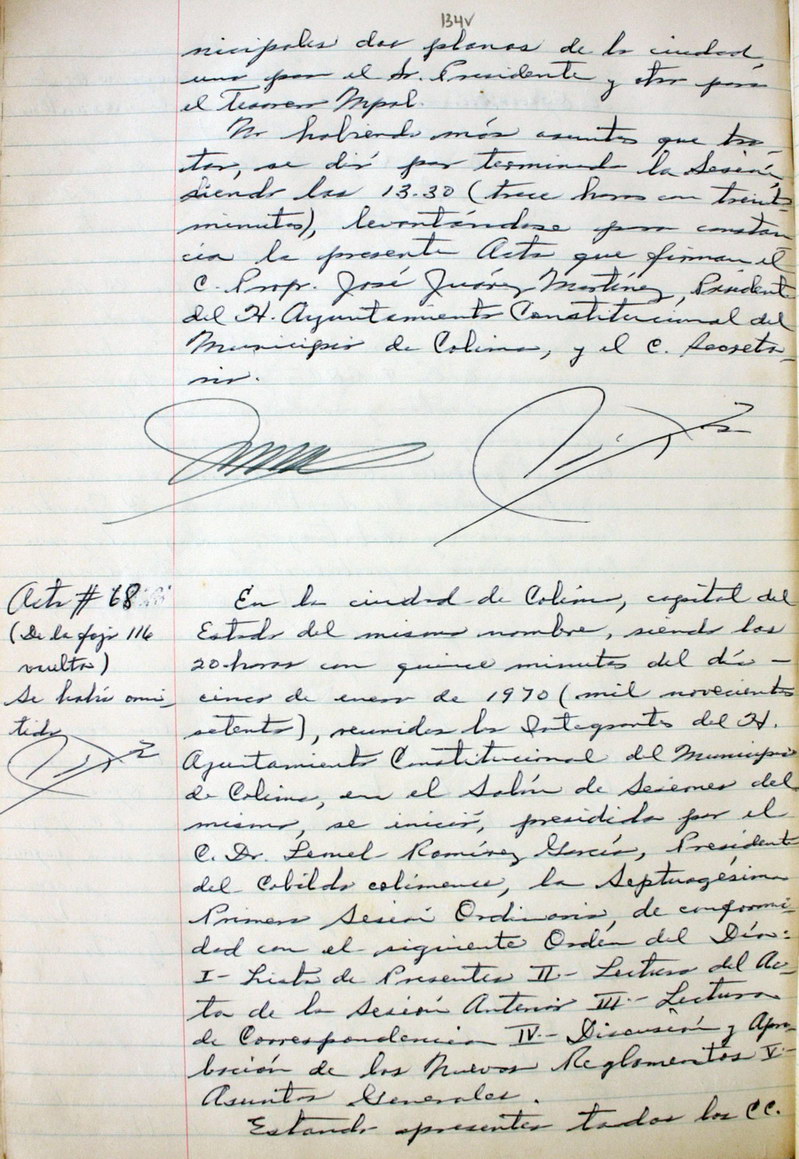 134V
nicipales dos planos de la ciudad,
uno para el Sr. Presidente y otro para
el Tesorero Mpal.
No habiendo más asuntos que tra-
tar, se dió por terminada la Sesión,
siendo las 13.30 (trece horas con treinta
minutos), levantándose para constan
cia la presente Acta que firman el
C. Profr. José Juárez Martínez, Presidente
del H. Ayuntamiento Constitucional del
Municipio de Colima, y el C. Secreta-
rio.
Acta # 68
(De la foja 116
vuelta)
Se había omi-
tido
En la ciudad de Colima, capital del
Estado del mismo nombre, siendo las
20 horas con quince minutos del día -
cinco de enero de 1970 (mil novecientos
setenta), reunidos los Integrantes del H.
Ayuntamiento Constitucional del Municipio
de Colima, en el Salón de Sesiones del
mismo, se inició, presidida por el
C. Dr. Leonel Ramírez García, Presidente
del Cabildo colimense, la Septuagésima
Primera Sesión Ordinaria, de conformi-
dad con el siguiente Orden del Día:
I- Lista de Presentes II- Lectura del Ac-
ta de la Sesión Anterior III- Lectura
de Correspondencia IV- Discusión y Apro-
bación de los Nuevos Reglamentos V-
Asuntos Generales.
Estando presentes todos los CC.